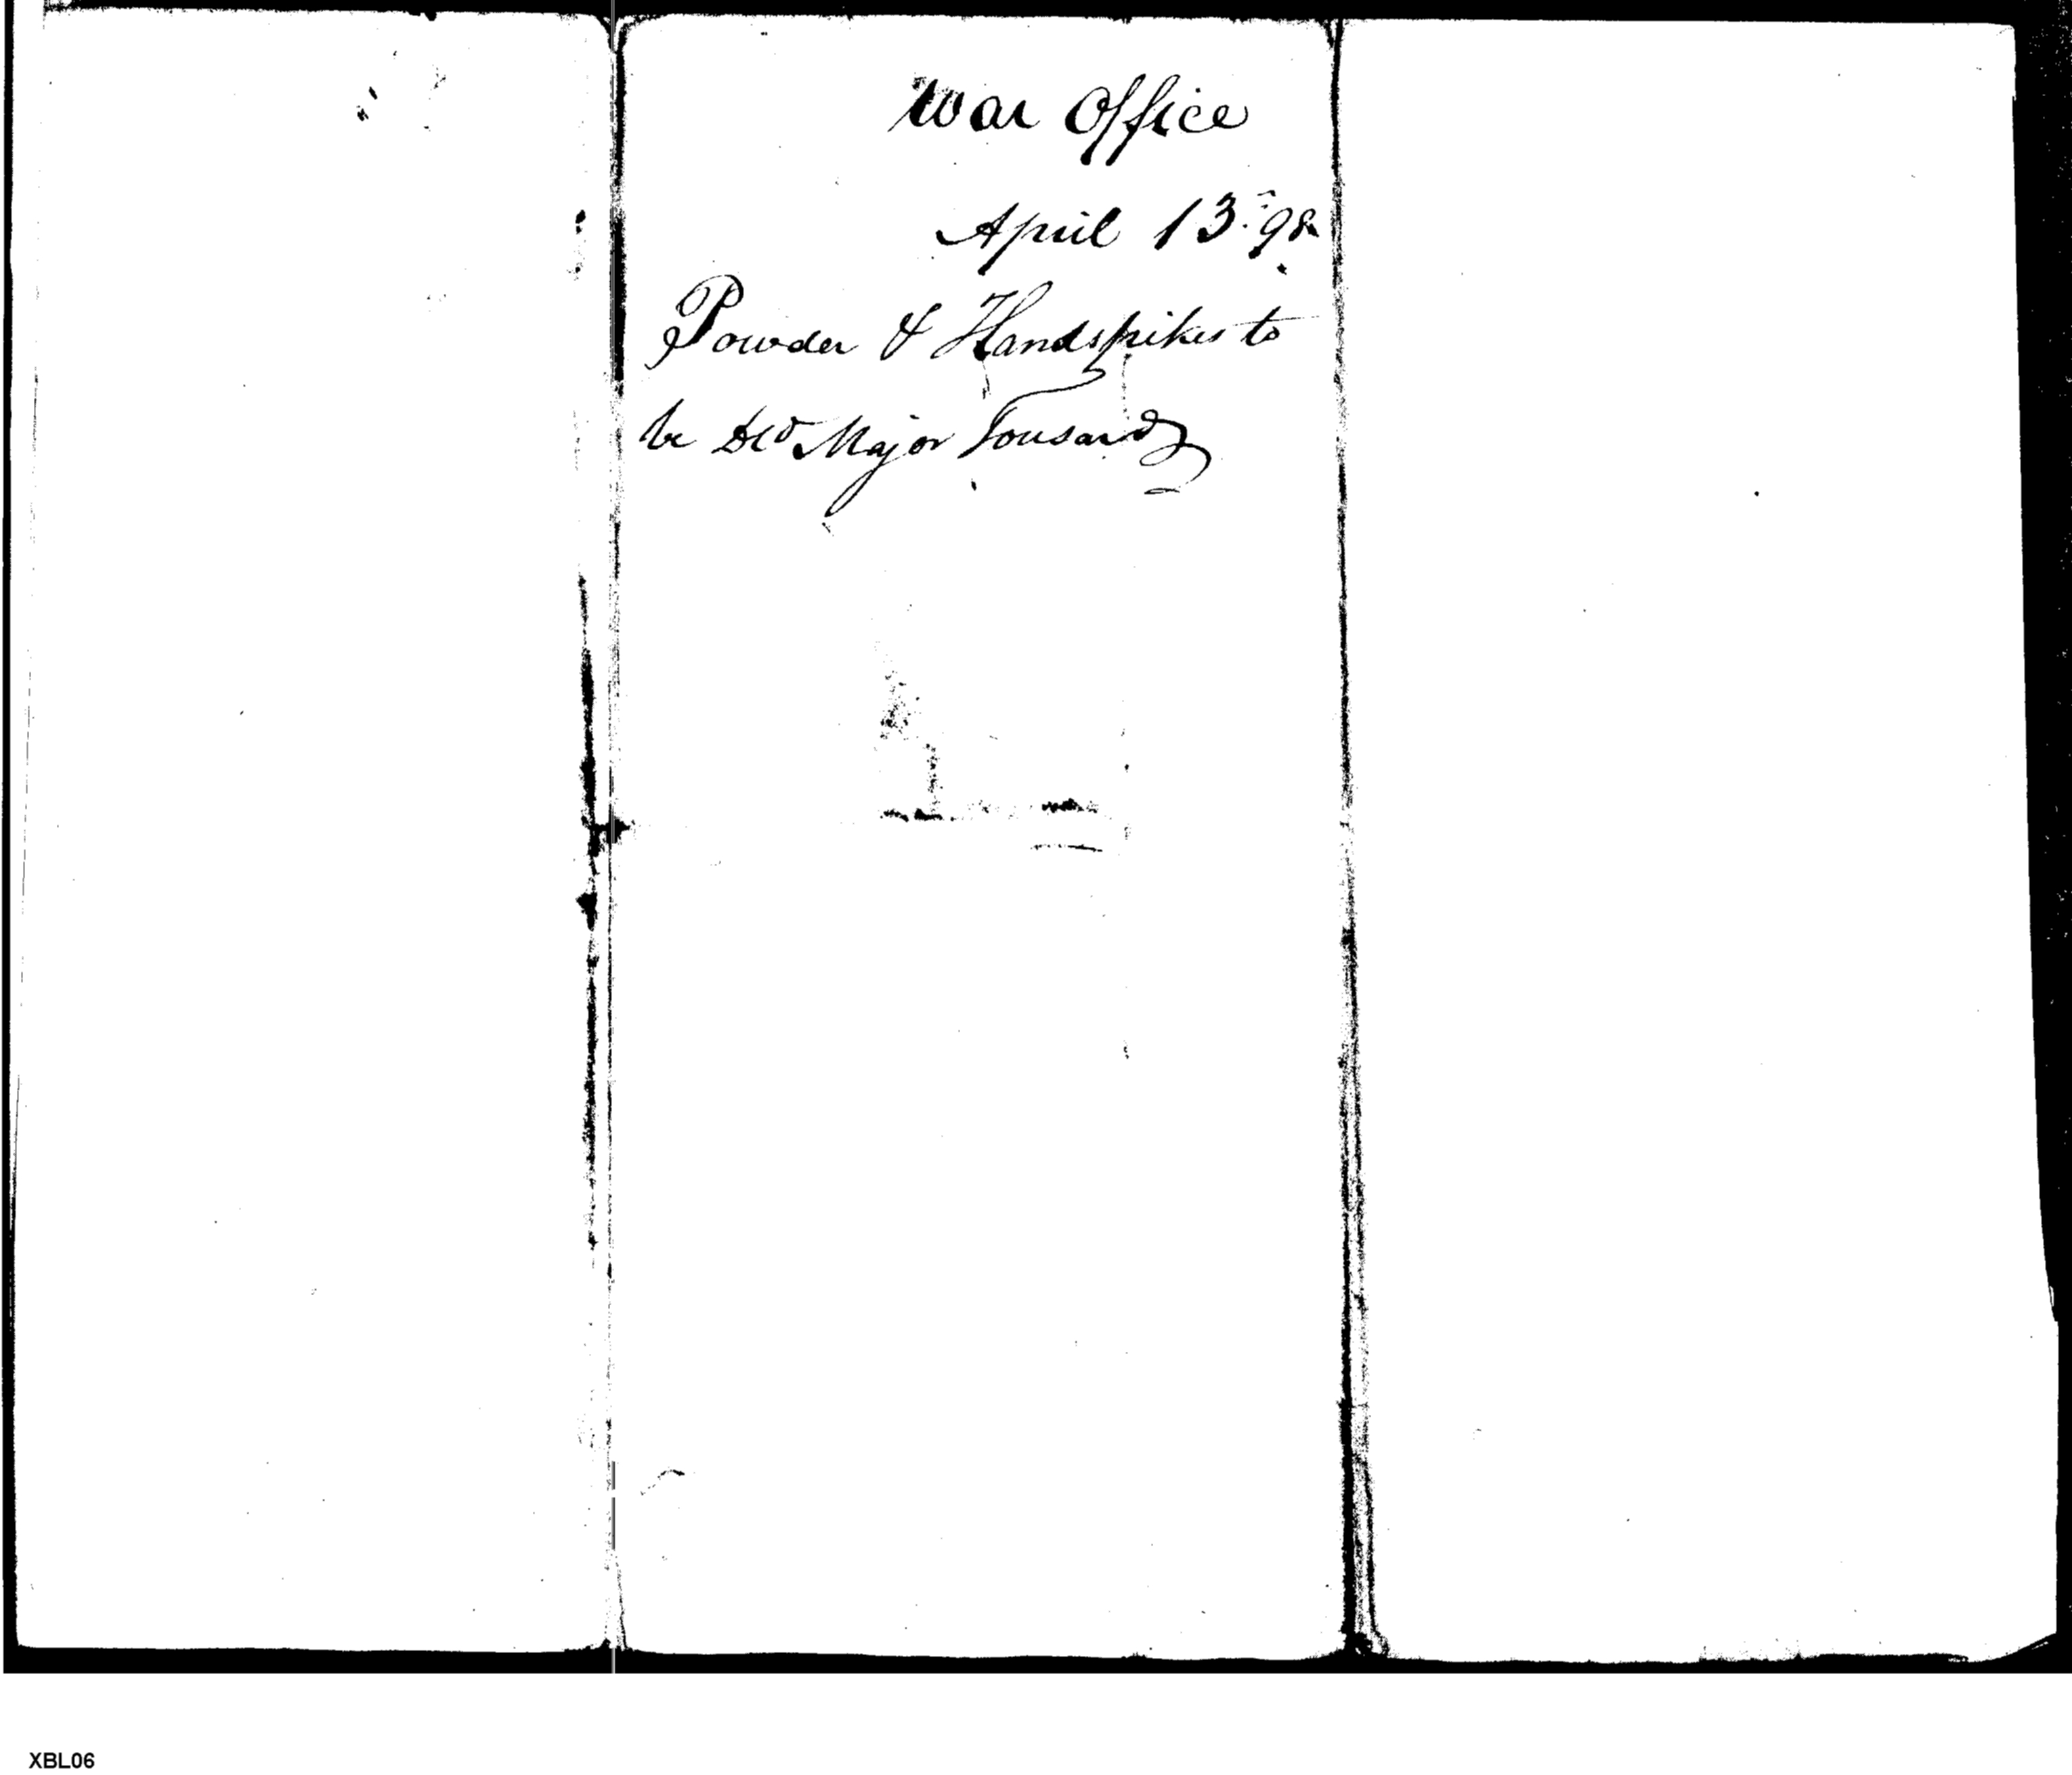 War Office
April 13. 98
Powder & Handspikes to
be Dld Major Tousard
XBL06